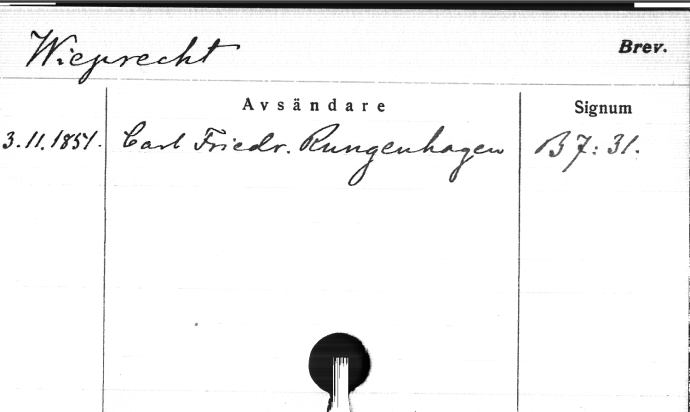 Wieprecht
Brev.
Avsändare
Signum
3.11.1851. Carl Friedr. Rungenhagen B 7: 31.